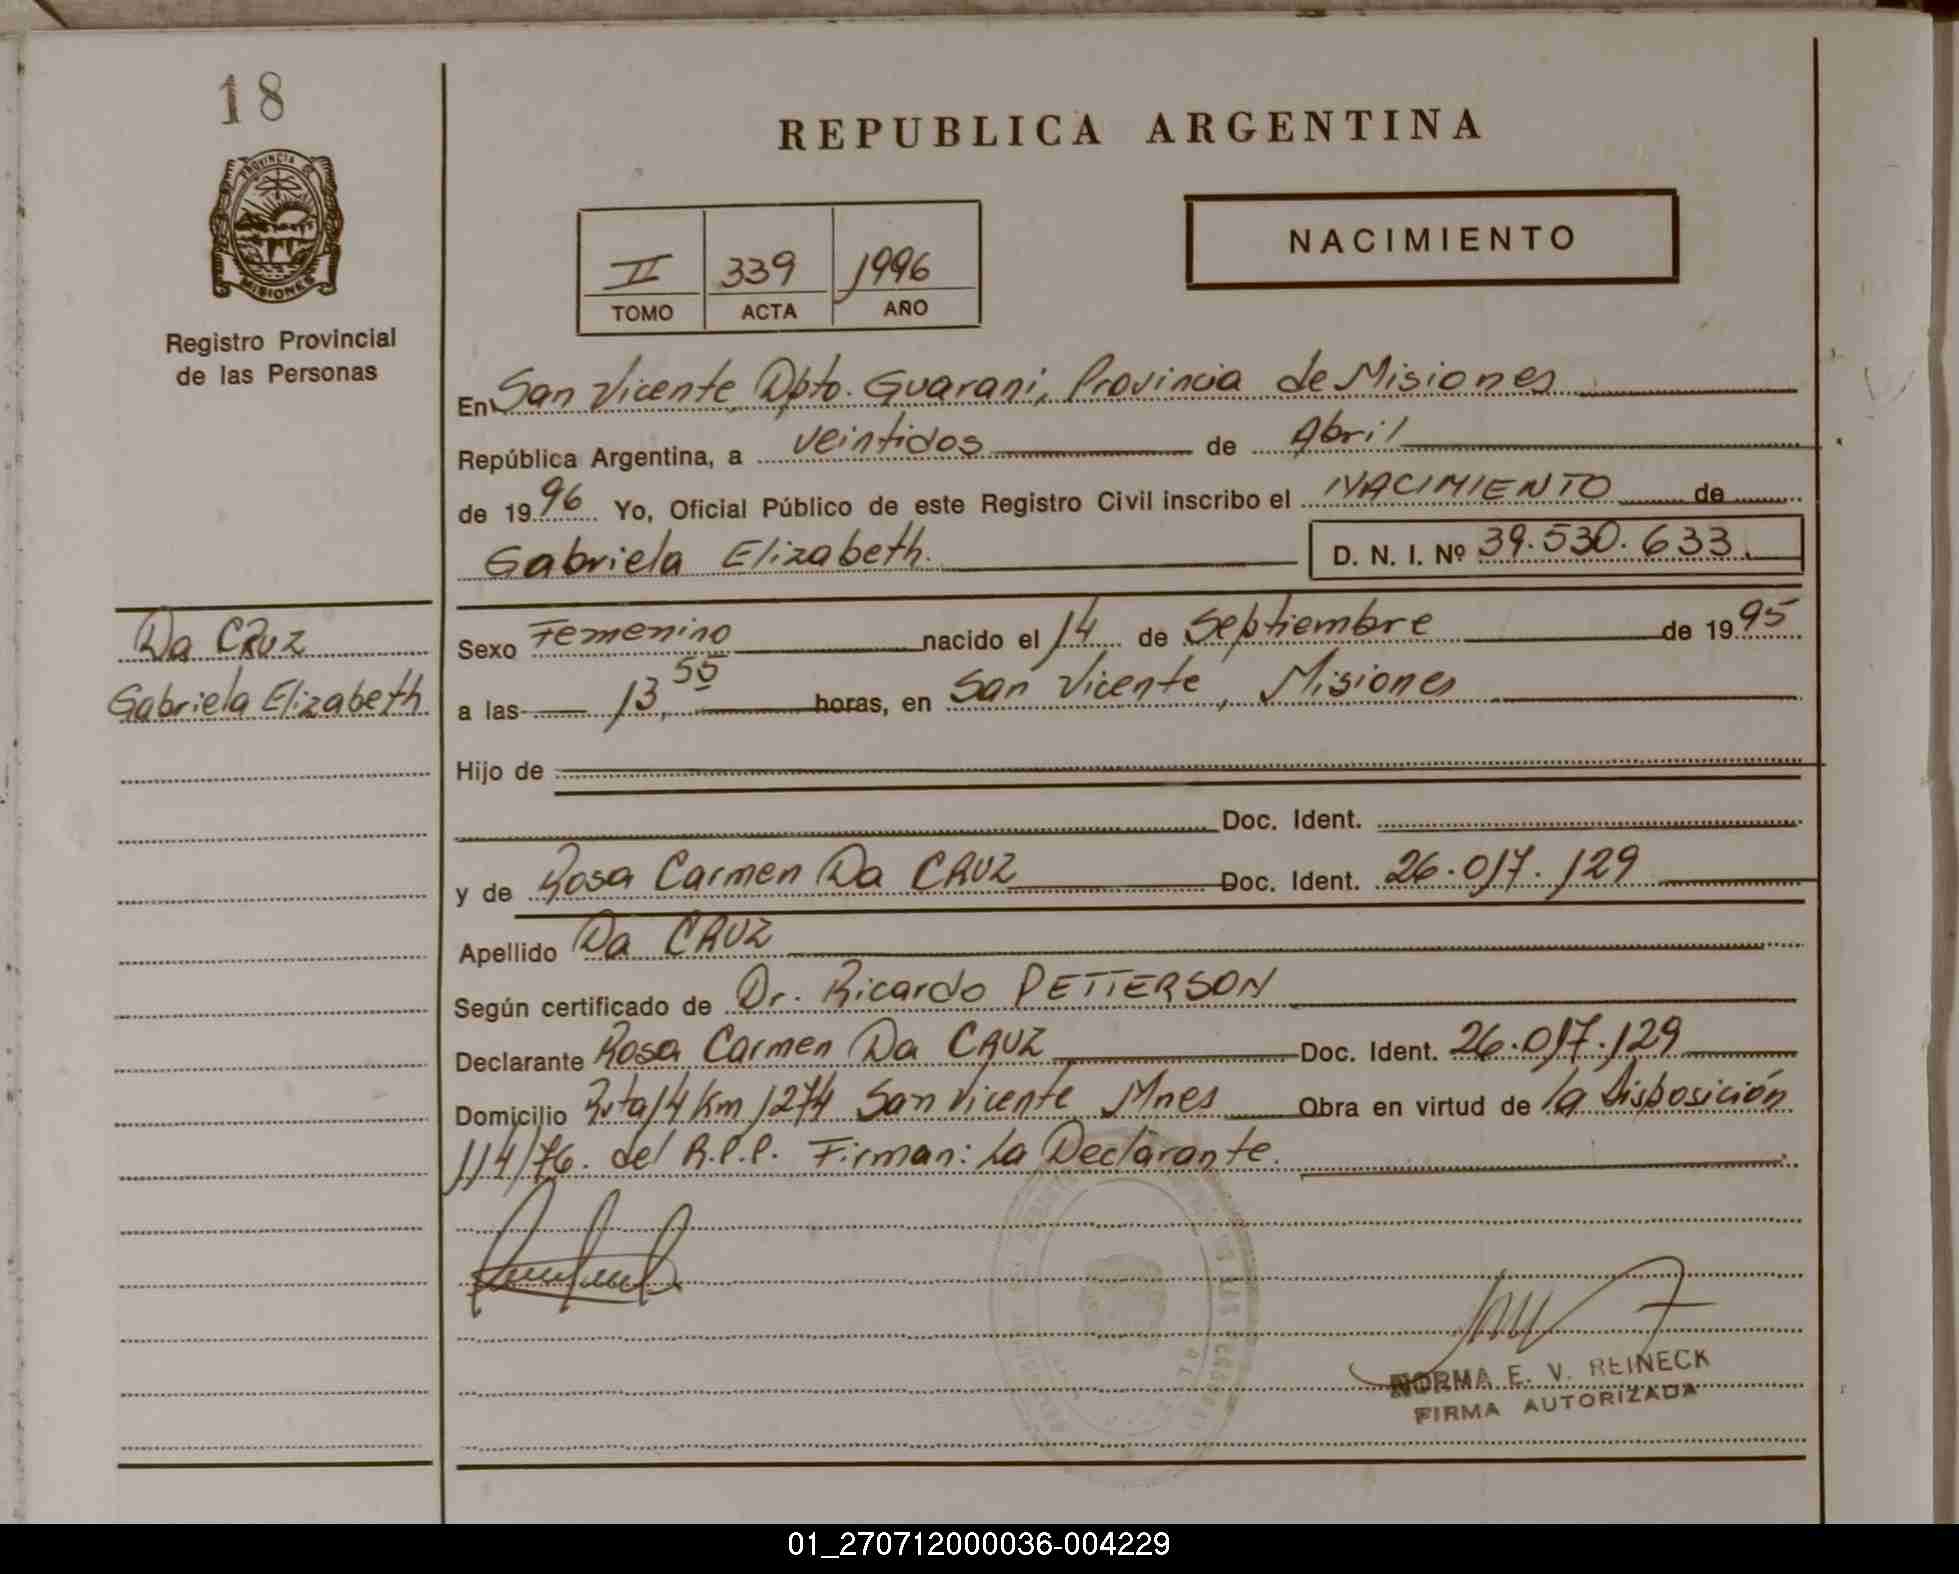 18
PROVINCIA DE
MISIONES
Registro Provincial
de las Personas
REPUBLICA ARGENTINA
II 339 1996
TOMO ACTA AÑO
NACIMIENTO
En San Vicente, Dpto. Guarani, Provincia de Misiones
República Argentina, a veintidos de Abril
de 1996 Yo, Oficial Público de este Registro Civil inscribo el NACIMIENTO de
Gabriela Elizabeth. D. N. I. Nº 39.530.633.
Da CRUZ
Gabriela Elizabeth
Sexo Femenino nacido el 14 de Septiembre de 1995
a las 13,55 horas, en San Vicente, Misiones
Hijo de
Doc. Ident.
y de Rosa Carmen Da CRUZ Doc. Ident. 26.017.129
Apellido Da CRUZ
Según certificado de Dr. Ricardo PETTERSON
Declarante Rosa Carmen Da CRUZ Doc. Ident. 26.017.129
Domicilio Ruta 14 Km 1274 San Vicente Mnes Obra en virtud de la Disposición
114/76. del R.P.P. Firman: La Declarante.
NORMA E. V. REINECK
FIRMA AUTORIZADA
01_270712000036-004229